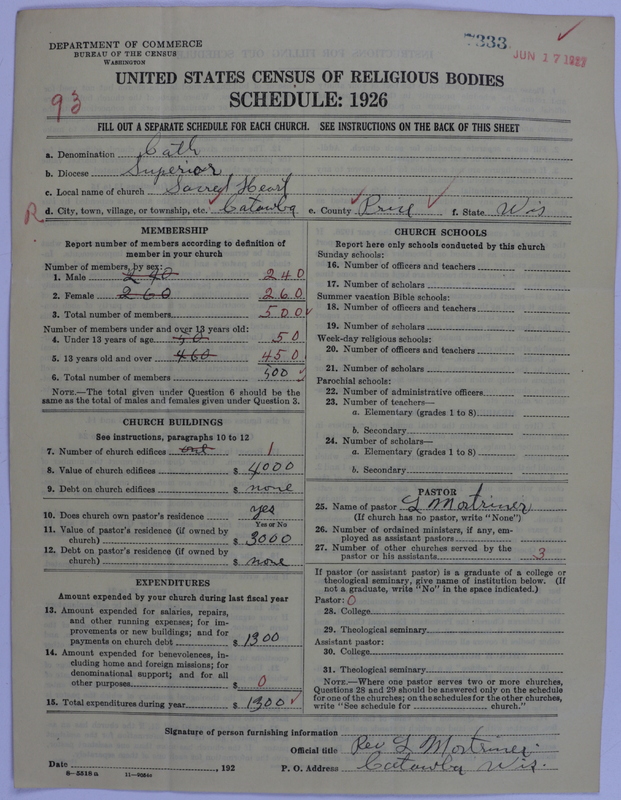 7333
JUN 17 1927
DEPARTMENT OF COMMERCE
BUREAU OF THE CENSUS
WASHINGTON
UNITED STATES CENSUS OF RELIGIOUS BODIES
SCHEDULE: 1926
93
FILL OUT A SEPARATE SCHEDULE FOR EACH CHURCH. SEE INSTRUCTIONS ON THE BACK OF THIS SHEET
a. Denomination Cath
b. Diocese Superior
c. Local name of church Sacred Heart
R d. City, town, village, or township, etc. Catawba e. County Price f. State Wis
MEMBERSHIP
Report number of members according to definition of
member in your church
Number of members, by sex:
1. Male 240 240
2. Female 260 260
3. Total number of members 500
Number of members under and over 13 years old:
4. Under 13 years of age 50 50
5. 13 years old and over 460 450
6. Total number of members 500
NOTE.—The total given under Question 6 should be
same as the total of males and females given under Question 3.
CHURCH BUILDINGS
See instructions, paragraphs 10 to 12
7. Number of church edifices one 1
8. Value of church edifices $ 4000
9. Debt on church edifices $ none
10. Does church own pastor's residence yes
Yes or No
11. Value of pastor's residence (if owned by
church) $ 3000
12. Debt on pastor's residence (if owned by
church) $ none
EXPENDITURES
Amount expended by your church during last fiscal year
13. Amount expended for salaries, repairs,
and other running expenses; for im-
provements or new buildings; and for
payments on church debt $ 1300
14. Amount expended for benevolences, in-
cluding home and foreign missions; for
denominational support; and for all
other purposes $ 0
15. Total expenditures during year $ 1300
CHURCH SCHOOLS
Report here only schools conducted by this church
Sunday schools:
16. Number of officers and teachers
17. Number of scholars
Summer vacation Bible schools:
18. Number of officers and teachers
19. Number of scholars
Week-day religious schools:
20. Number of officers and teachers
21. Number of scholars
Parochial schools:
22. Number of administrative officers
23. Number of teachers—
a. Elementary (grades 1 to 8)
b. Secondary
24. Number of scholars—
a. Elementary (grades 1 to 8)
b. Secondary
PASTOR
25. Name of pastor L Mortriner
(If church has no pastor, write "None")
26. Number of ordained ministers, if any, em-
ployed as assistant pastors
27. Number of other churches served by the
pastor or his assistants 3
If pastor (or assistant pastor) is a graduate of a college or
theological seminary, give name of institution below. (If
not a graduate, write "No" in the space indicated.)
Pastor: 0
28. College
29. Theological seminary
Assistant pastor:
30. College
31. Theological seminary
NOTE.—Where one pastor serves two or more churches,
Questions 28 and 29 should be answered only on the schedule
for one of the churches; on the schedules for the other churches,
write "See schedule for church."
Signature of person furnishing information
Official title Rev L Mortriner
Date , 192 P. O. Address Catawba Wis.